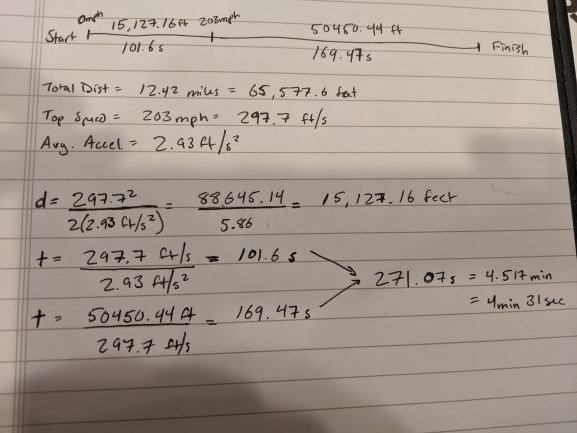 0mph 15,127.16ft 203mph 50450.44 ft
Start Finish
101.6s 169.47s
Total Dist = 12.42 miles = 65,577.6 feet
Top Speed = 203 mph = 297.7 ft/s
Avg. Accel = 2.93 ft/s²
d = 297.7² / 2(2.93 ft/s²) = 88645.14 / 5.86 = 15,127.16 feet
t = 297.7 ft/s / 2.93 ft/s² = 101.6 s
271.07s = 4.517 min
= 4min 31sec
t = 50450.44 ft / 297.7 ft/s = 169.47s